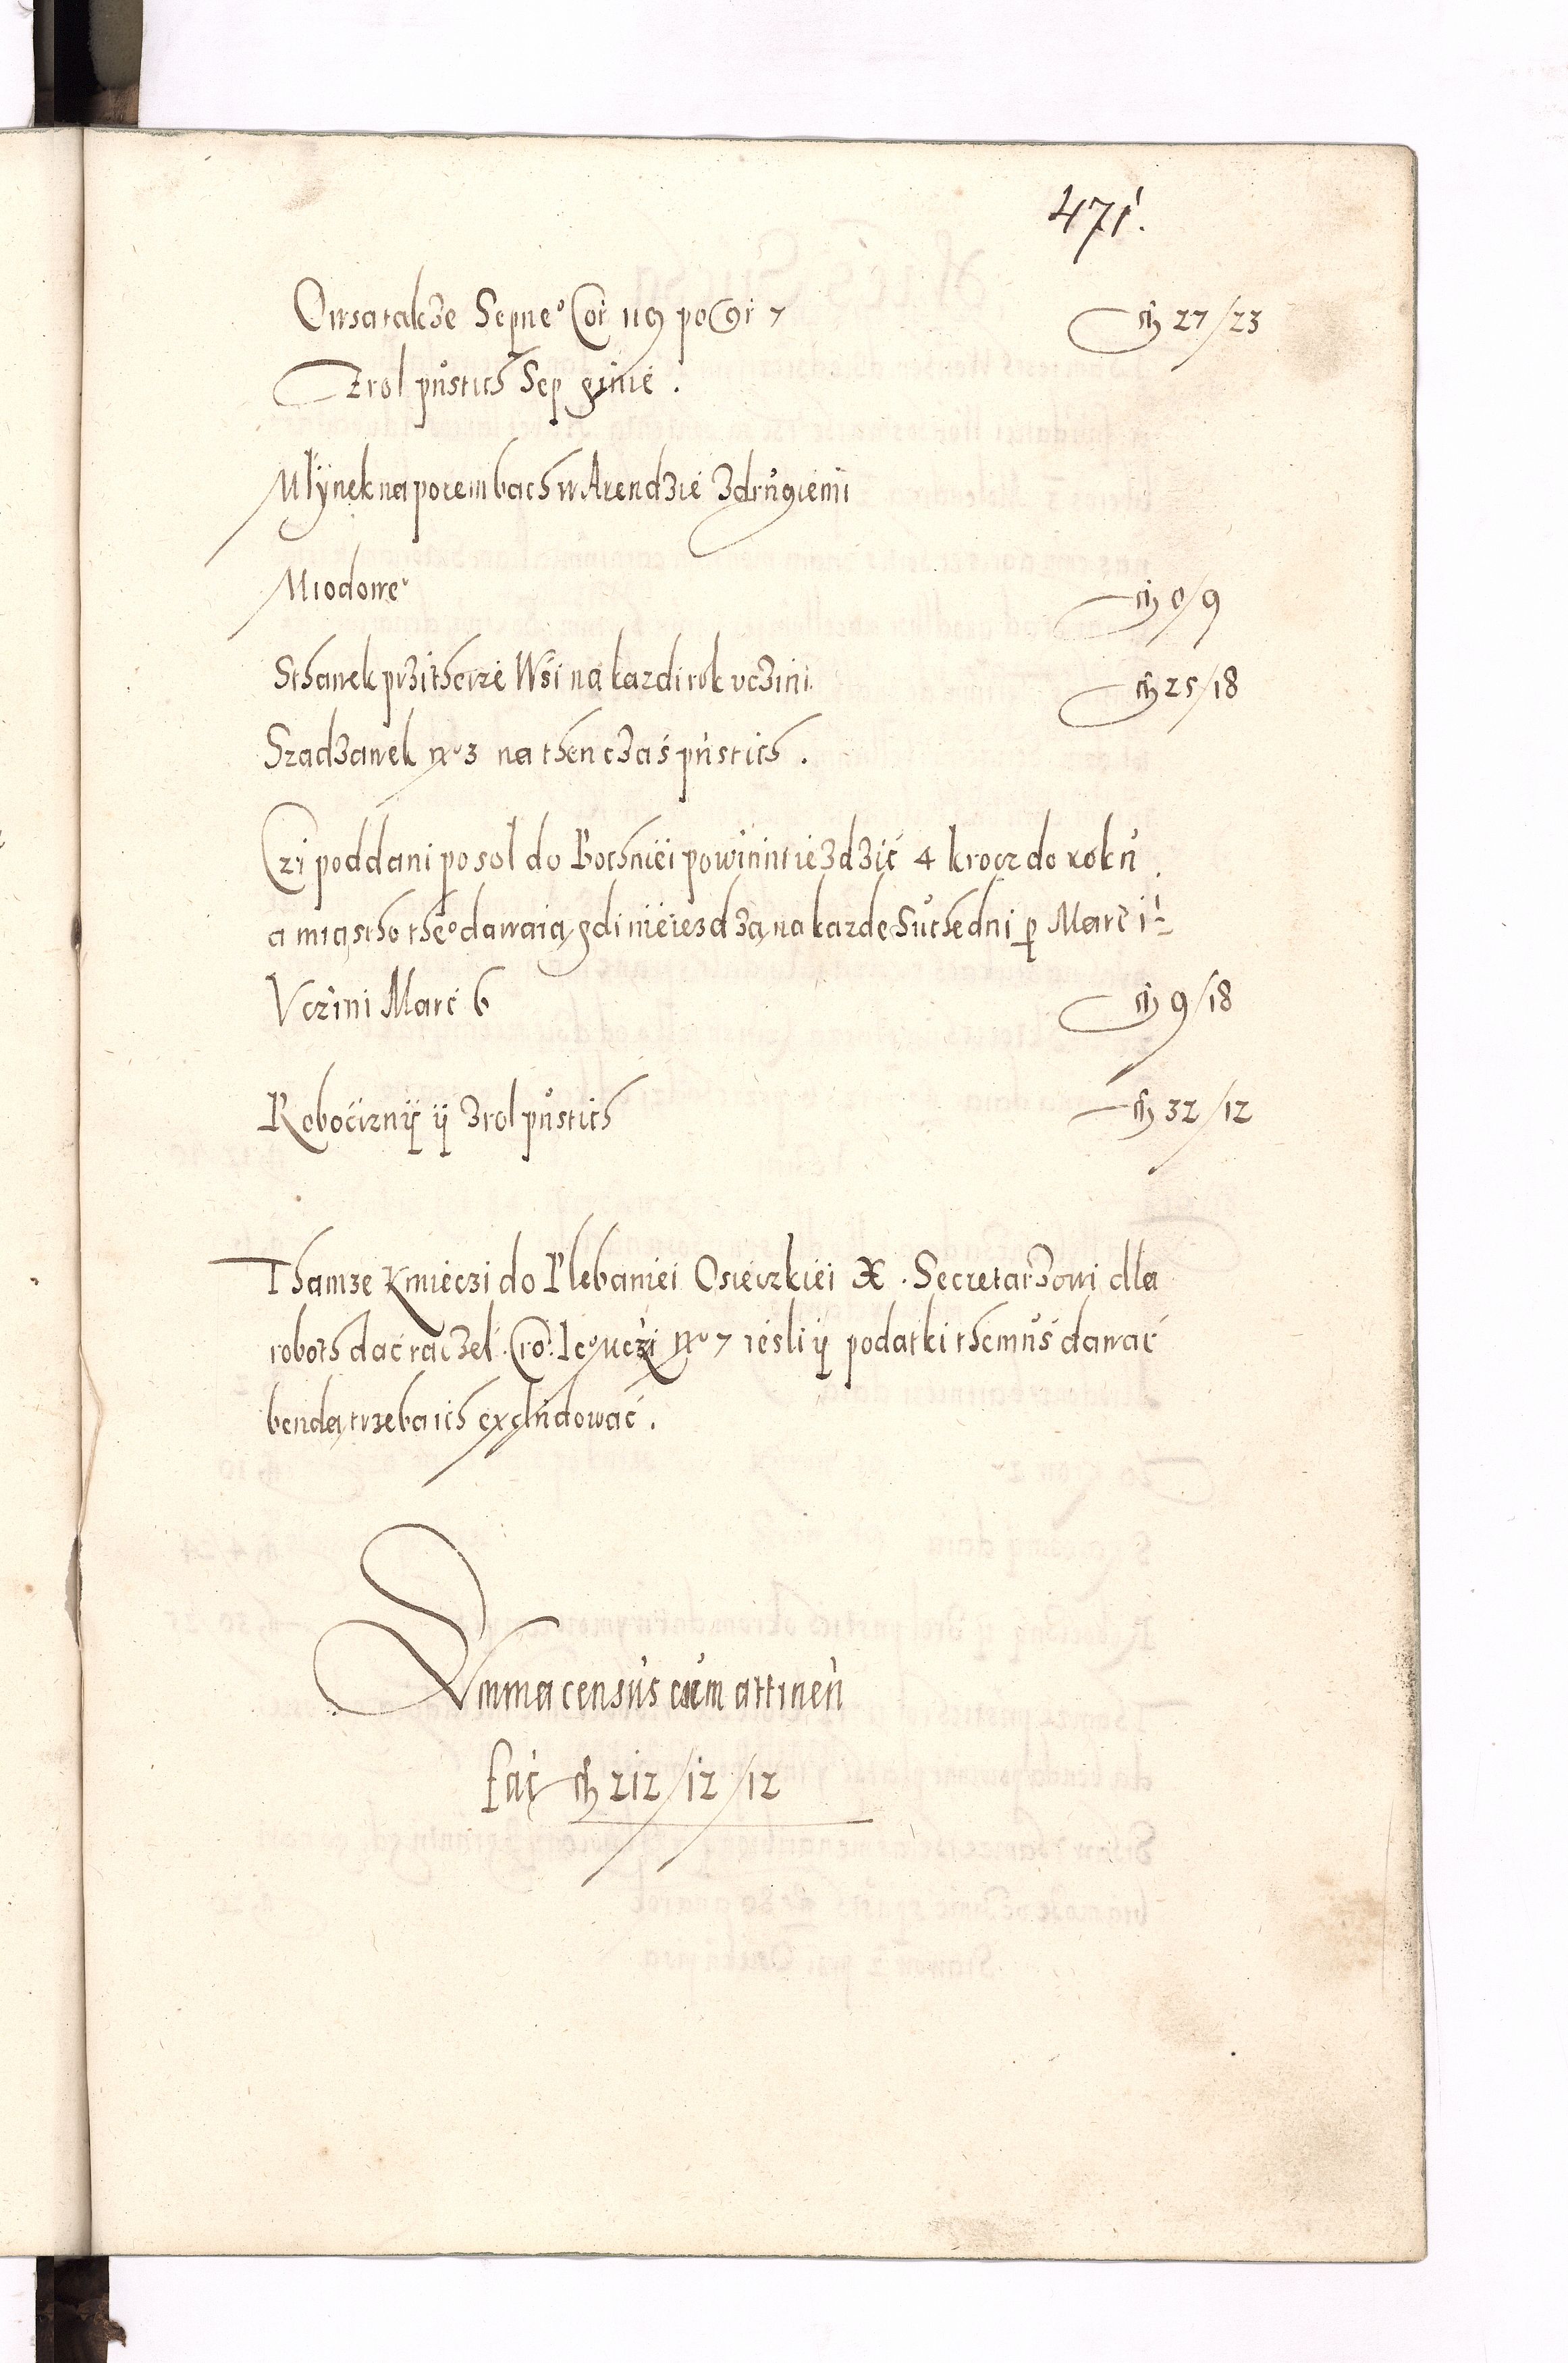 471.
Owsa takze Sepne° Cor 119 po gr 7 fl 27/23
Z rol pustich Sep ginie.
Młynek na porembach w Arendzie z drugiemi
Miodowe° fl 0/9
Sthawek przi theirze Wsi na kazdi rok uczini fl 25/18
Szadzawek No 3 na then czas pustich.
Czi poddani po sol do Bochniei powinni iezdzić 4 krocz do roku
a miastho the° dawaią gdi nie iezdzą na kazde Suchedni p Marc 1½
Uczini Marc 6 fl 9/18
Robocizny y z rol pustich fl 32/12
Thamze Kmieczi do Plebaniei Osieczkiei X. Secretarzowi dla
roboth dać raczel Cro: Ic° uczi No 7 iesli y podatki themus dawać
bendą trzeba ich excludować.
Summa census cum attinen
fac fl 212/12/12